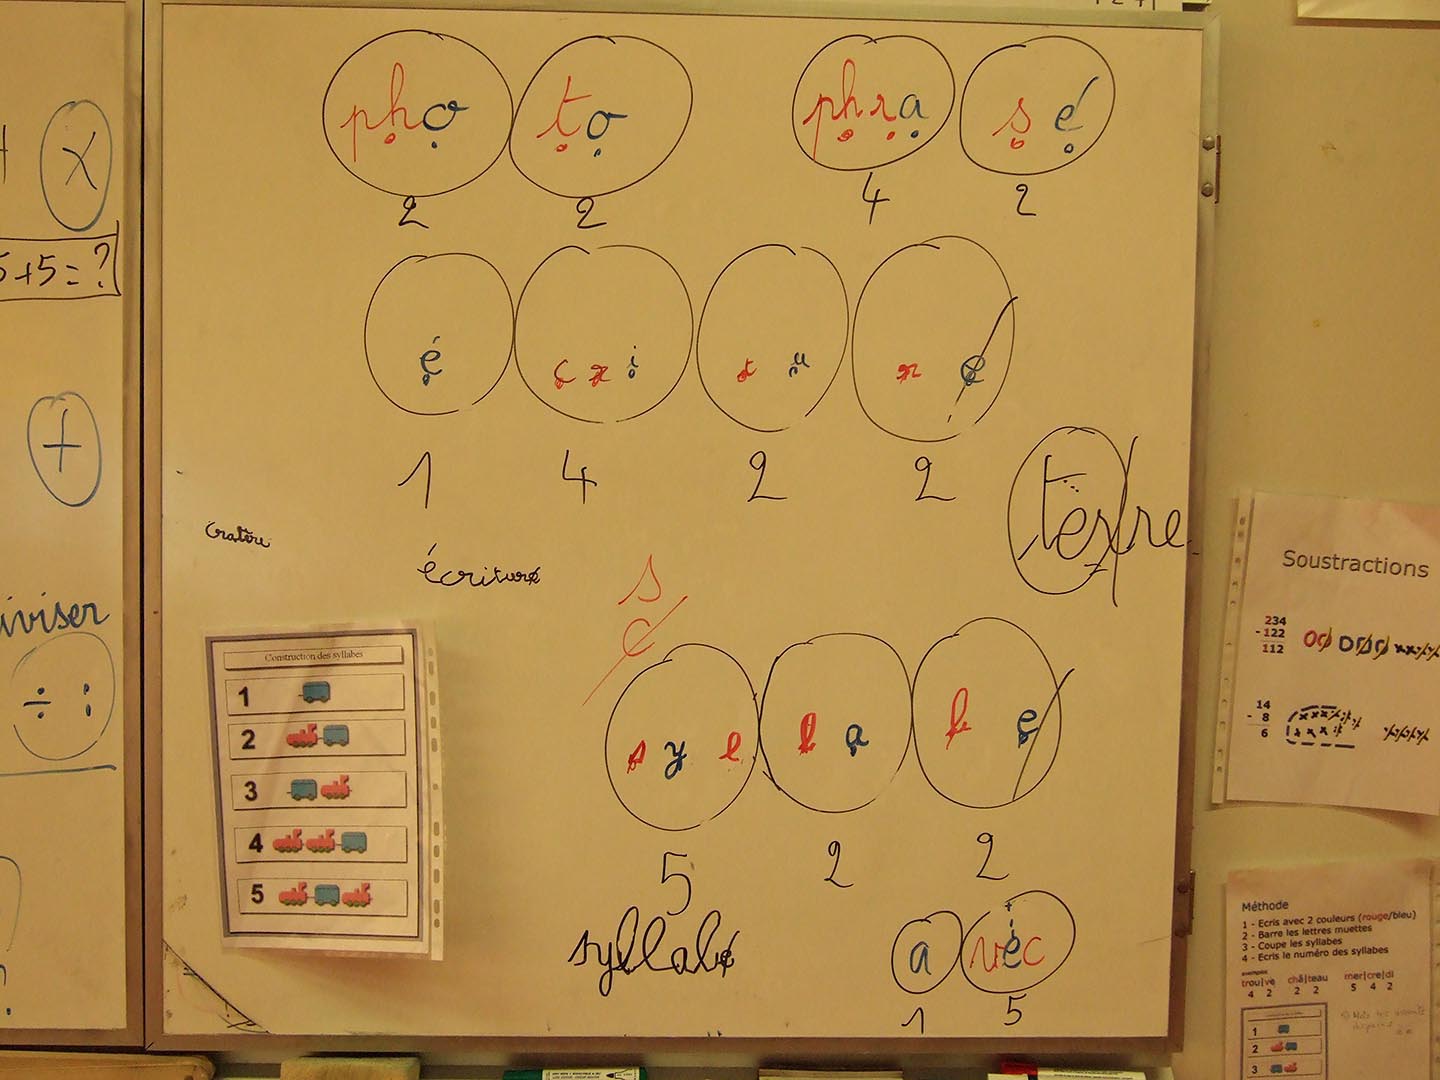 pho to
2 2
phra se
4 2
x
5+5=?
é cri tu re
1 4 2 2
+
terre
cratère
écriture
s
c
Soustractions
234
-122
112
14
- 8
6
iviser
÷ :
Construction des syllabes
1
2
3
4
5
syl la be
5 2 2
syllabe
a vec
1 5
Méthode
1 - Ecris avec 2 couleurs (rouge/bleu)
2 - Barre les lettres muettes
3 - Coupe les syllabes
4 - Ecris le numéro des syllabes
exemples
trou|ve châ|teau mer|cre|di
4 2 2 2 5 4 2
1
2
3